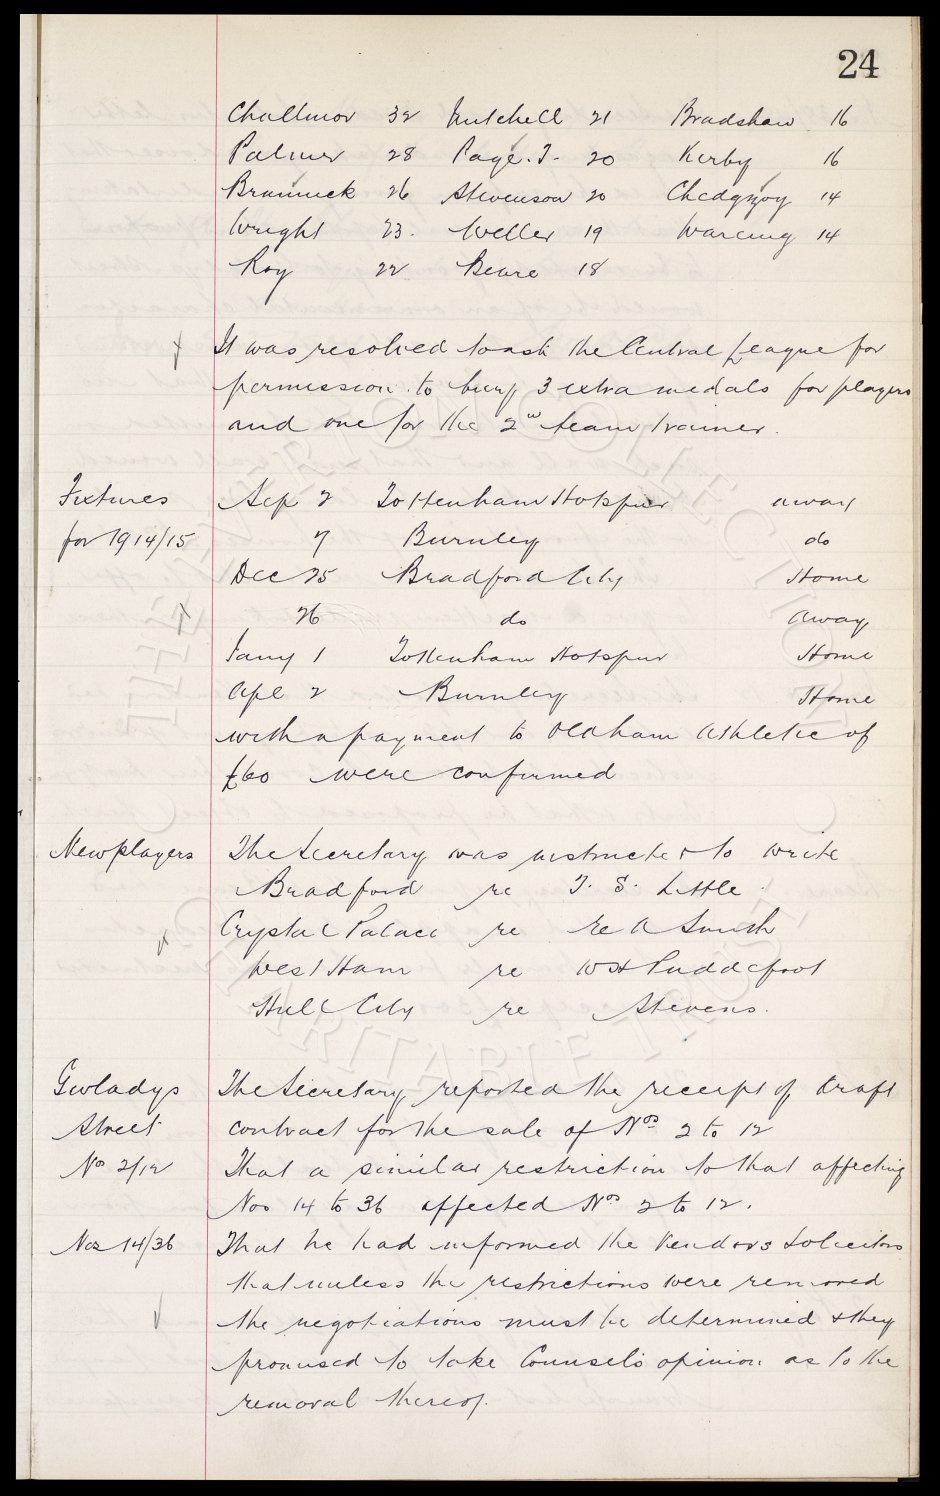 24
Challinor 32 Mitchell 21 Bradshaw 16
Palmer 28 Page. T. 20 Kirby 16
Brannick 26 Stevenson 20 Chedgzoy 14
Wright 23. Weller 19 Wareing 14
Roy 22 Beare 18
It was resolved to ask the Central League for
permission to buy 3 extra medals for players
and one for the 2nd team trainer.
Fixtures Sep 2 Tottenham Hotspur away
for 1914/15 7 Burnley do
Dec 25 Bradford City Home
26 do away
Jany 1 Tottenham Hotspur Home
Apl 2 Burnley Home
with a payment to Oldham Athletic of
£60 were confirmed
New players The Secretary was instructed to write
Bradford re T. S. Little
Crystal Palace re re A Smith
West Ham re W H Puddefoot
Hull City re Stevens.
Gwladys The Secretary reported the receipt of draft
Street contract for the sale of Nos 2 to 12
Nos 2/12 That a similar restriction to that affecting
Nos 14 to 36 affected Nos 2 to 12.
Nos 14/36 That he had informed the Vendors Solicitors
that unless the restrictions were removed
the negotiations must be determined & they
promised to take Counsel's opinion as to the
removal thereof.
THE EVERTON COLLECTION
CHARITABLE TRUST